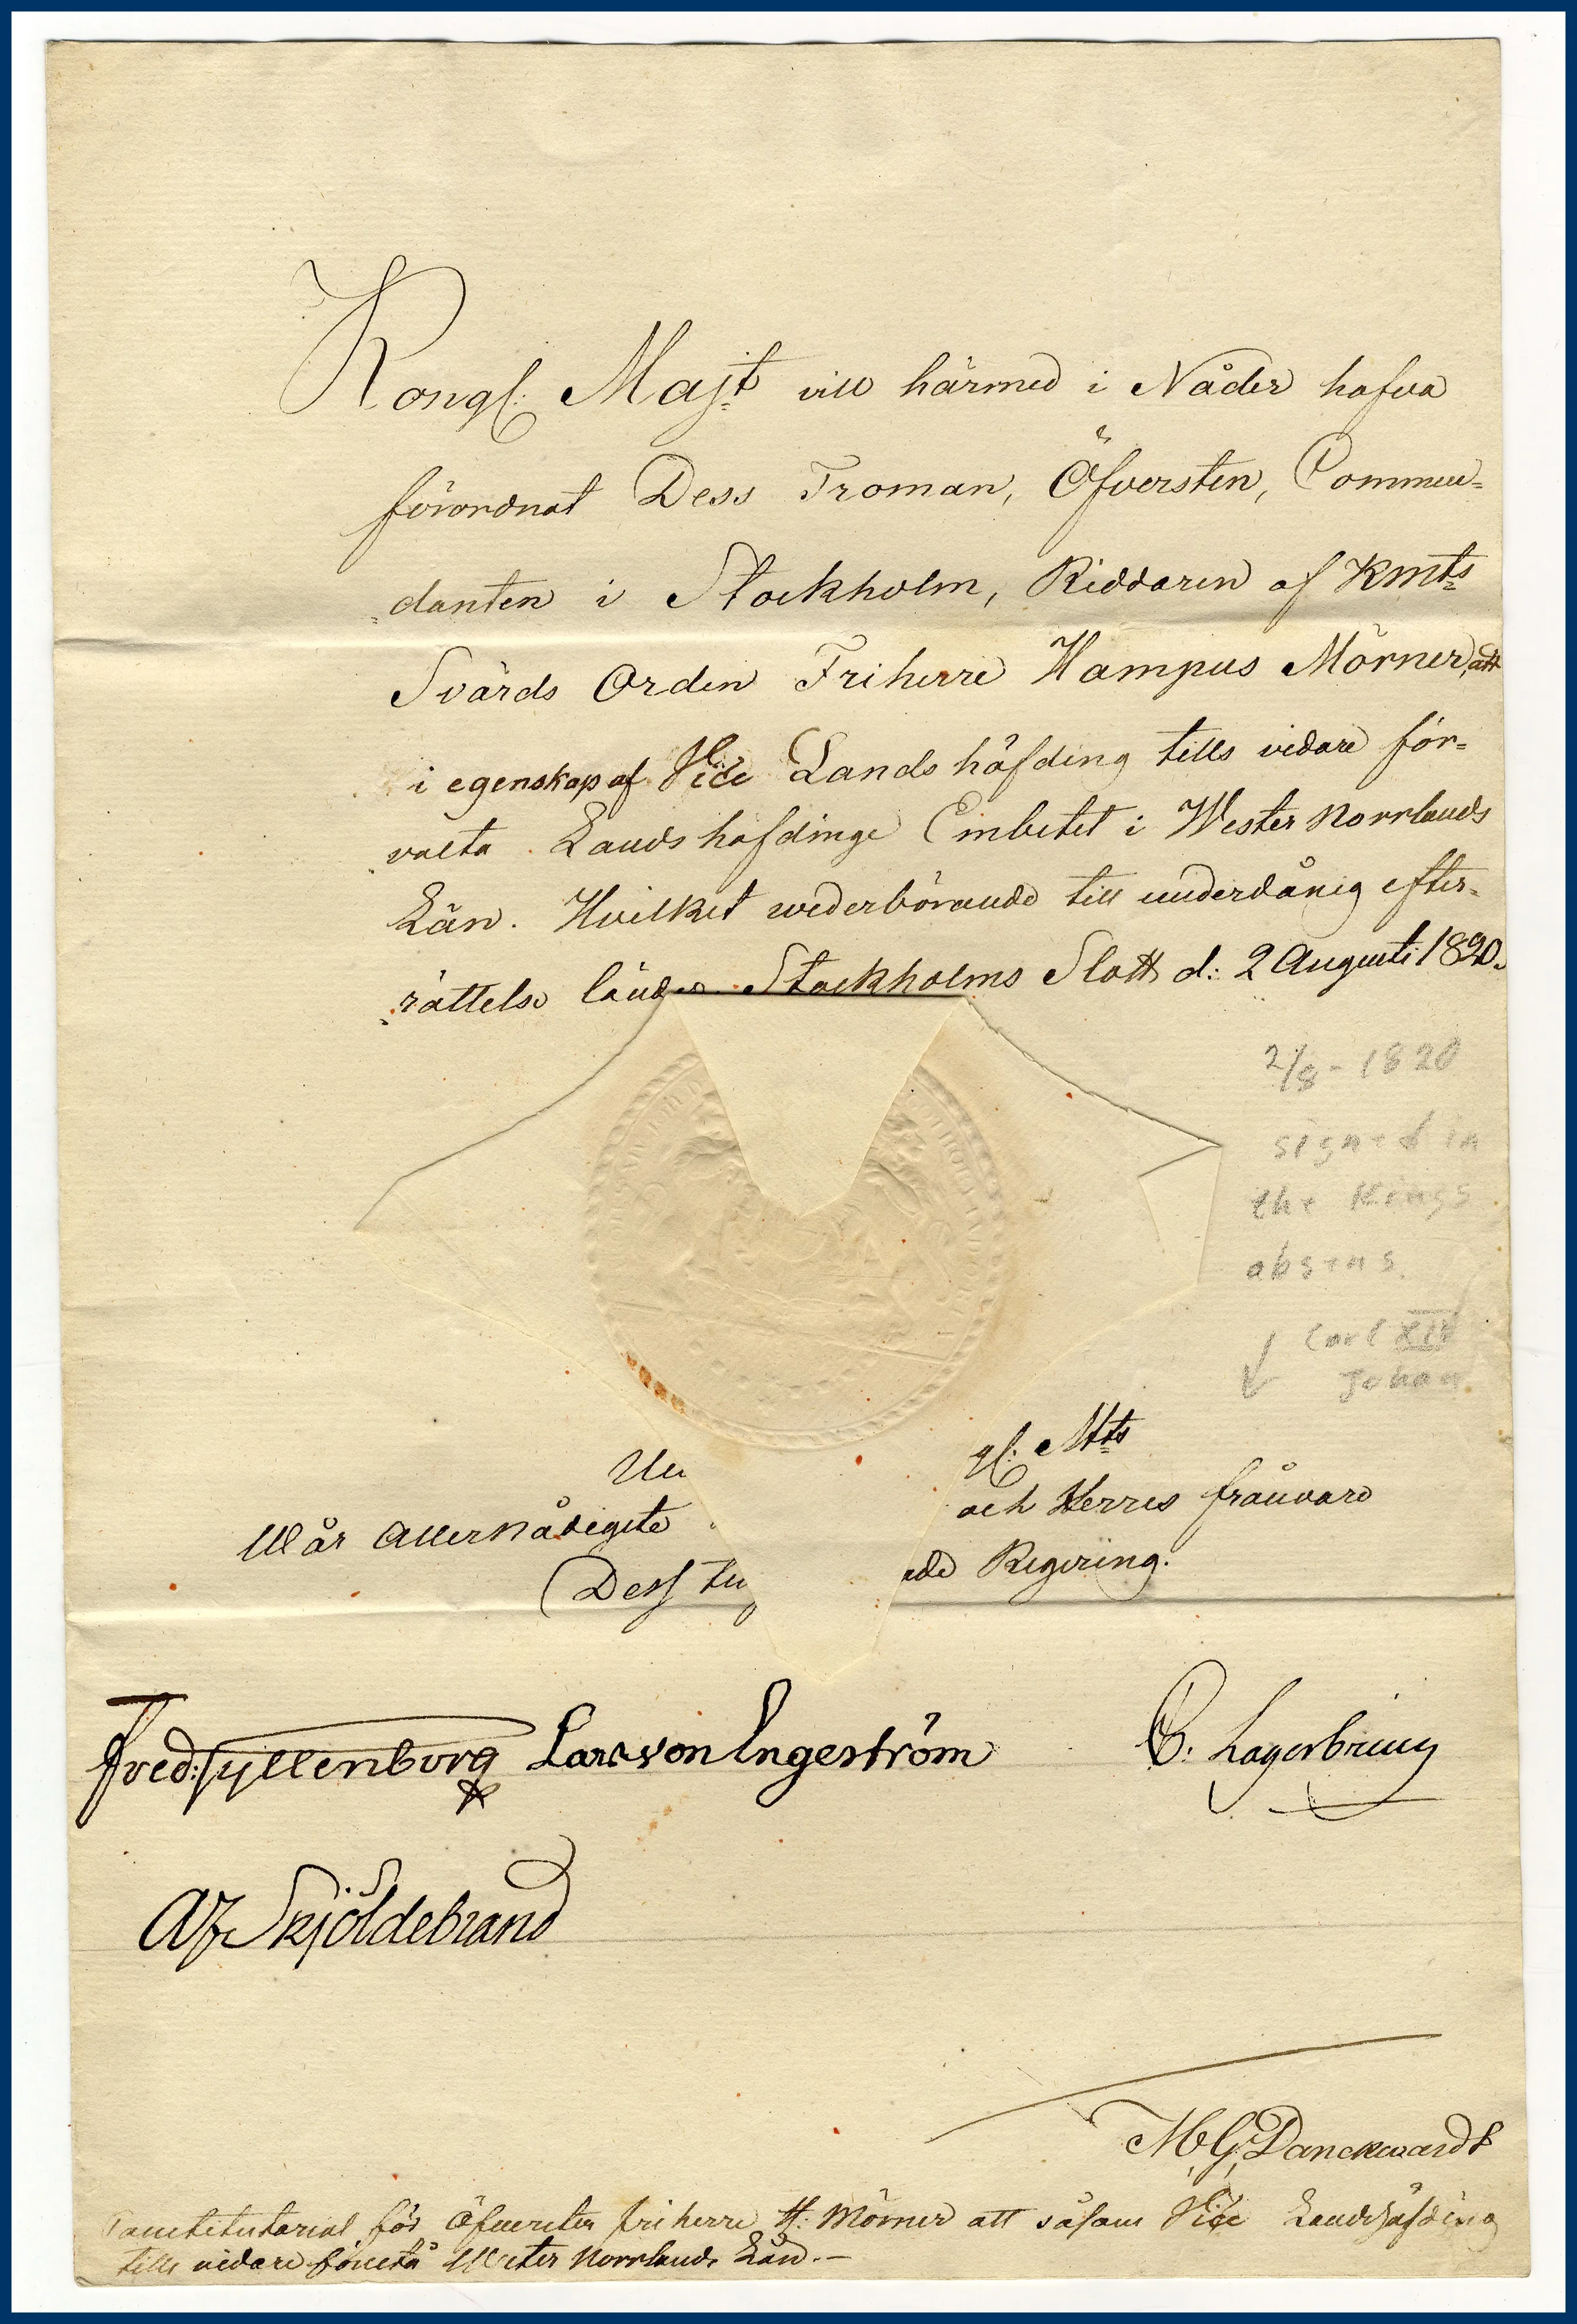 Kongl: Majt vill härmed i Nåder hafva
förordnat Dess Troman, Öfversten, Commen=
danten i Stockholm, Riddaren af Kmts
Svärds Orden Friherre Hampus Mörner, att
i egenskap af Vice Landshöfding tills vidare för=
valta Landshöfdinge Embetet i Wester Norrlands
Län. Hvilket wederbörande till underdånig efter=
rättelse länder. Stockholms Slott d: 2 Augusti 1820.
2/8 - 1820
signed in
the Kings
absens.
Carl XIV
Johan
Un gl: Mts
Wår Allernådigste och Herres frånvaro
Dess tu ade Regering.
Fred: Gyllenborg Lars von Engeström C: Lagerbring
AF Skjöldebrand
M. G. Danckwardt
Constitutorial för Öfversten friherre H: Mörner att såsom Vice Landshöfding
tills vidare förestå Wester Norrlands Län. –